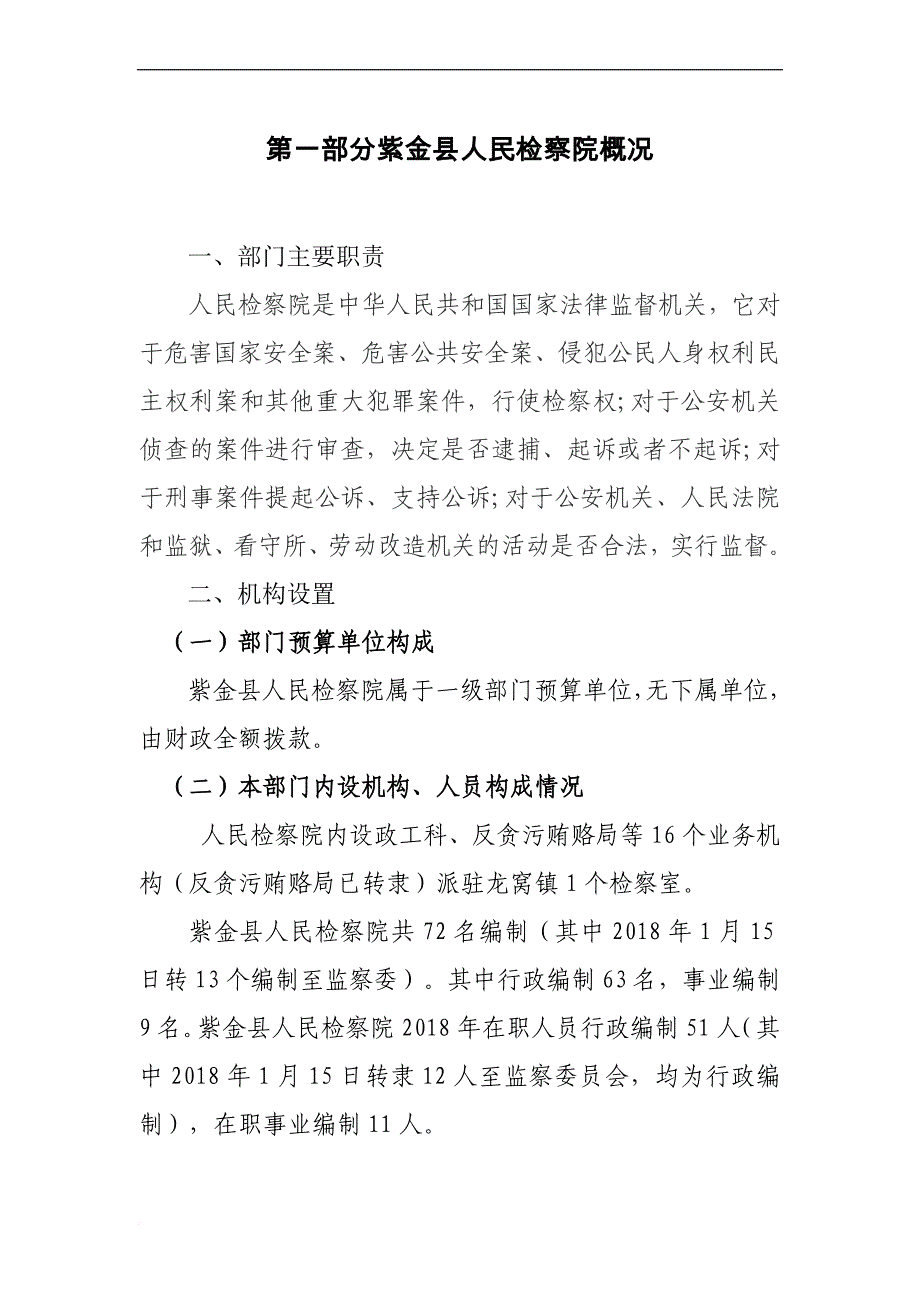 第一部分紫金县人民检察院概况
一、部门主要职责
人民检察院是中华人民共和国国家法律监督机关，它对
于危害国家安全案、危害公共安全案、侵犯公民人身权利民
主权利案和其他重大犯罪案件，行使检察权；对于公安机关
侦查的案件进行审查，决定是否逮捕、起诉或者不起诉；对
于刑事案件提起公诉、支持公诉；对于公安机关、人民法院
和监狱、看守所、劳动改造机关的活动是否合法，实行监督。
二、机构设置
（一）部门预算单位构成
紫金县人民检察院属于一级部门预算单位，无下属单位，
由财政全额拨款。
（二）本部门内设机构、人员构成情况
人民检察院内设政工科、反贪污贿赂局等 16 个业务机
构（反贪污贿赂局已转隶）派驻龙窝镇 1 个检察室。
紫金县人民检察院共 72 名编制（其中 2018 年 1 月 15
日转 13 个编制至监察委）。其中行政编制 63 名，事业编制
9 名。紫金县人民检察院 2018 年在职人员行政编制 51 人（其
中 2018 年 1 月 15 日转隶 12 人至监察委员会，均为行政编
制），在职事业编制 11 人。